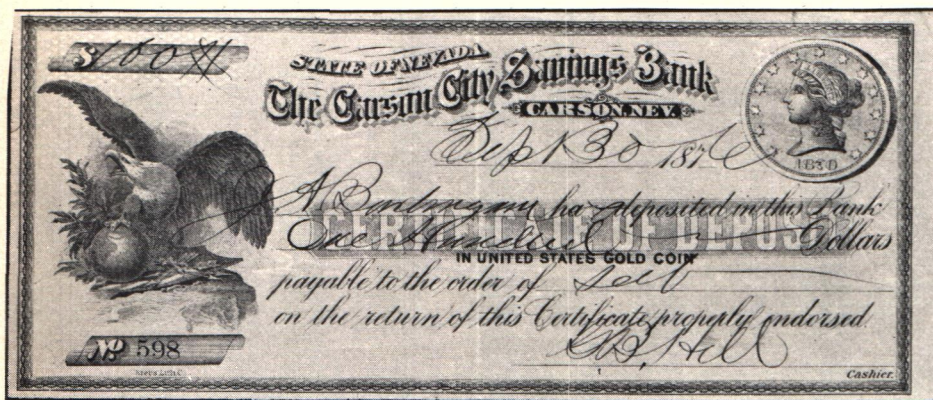 $100 00/xx
STATE OF NEVADA
The Carson City Savings Bank
CARSON, NEV.
Sept 30 1876
1870
A has deposited in this Bank
One Hundred Dollars
CERTIFICATE OF DEPOSIT
IN UNITED STATES GOLD COIN
payable to the order of Self
on the return of this Certificate properly endorsed.
Hill
No 598
Cashier.